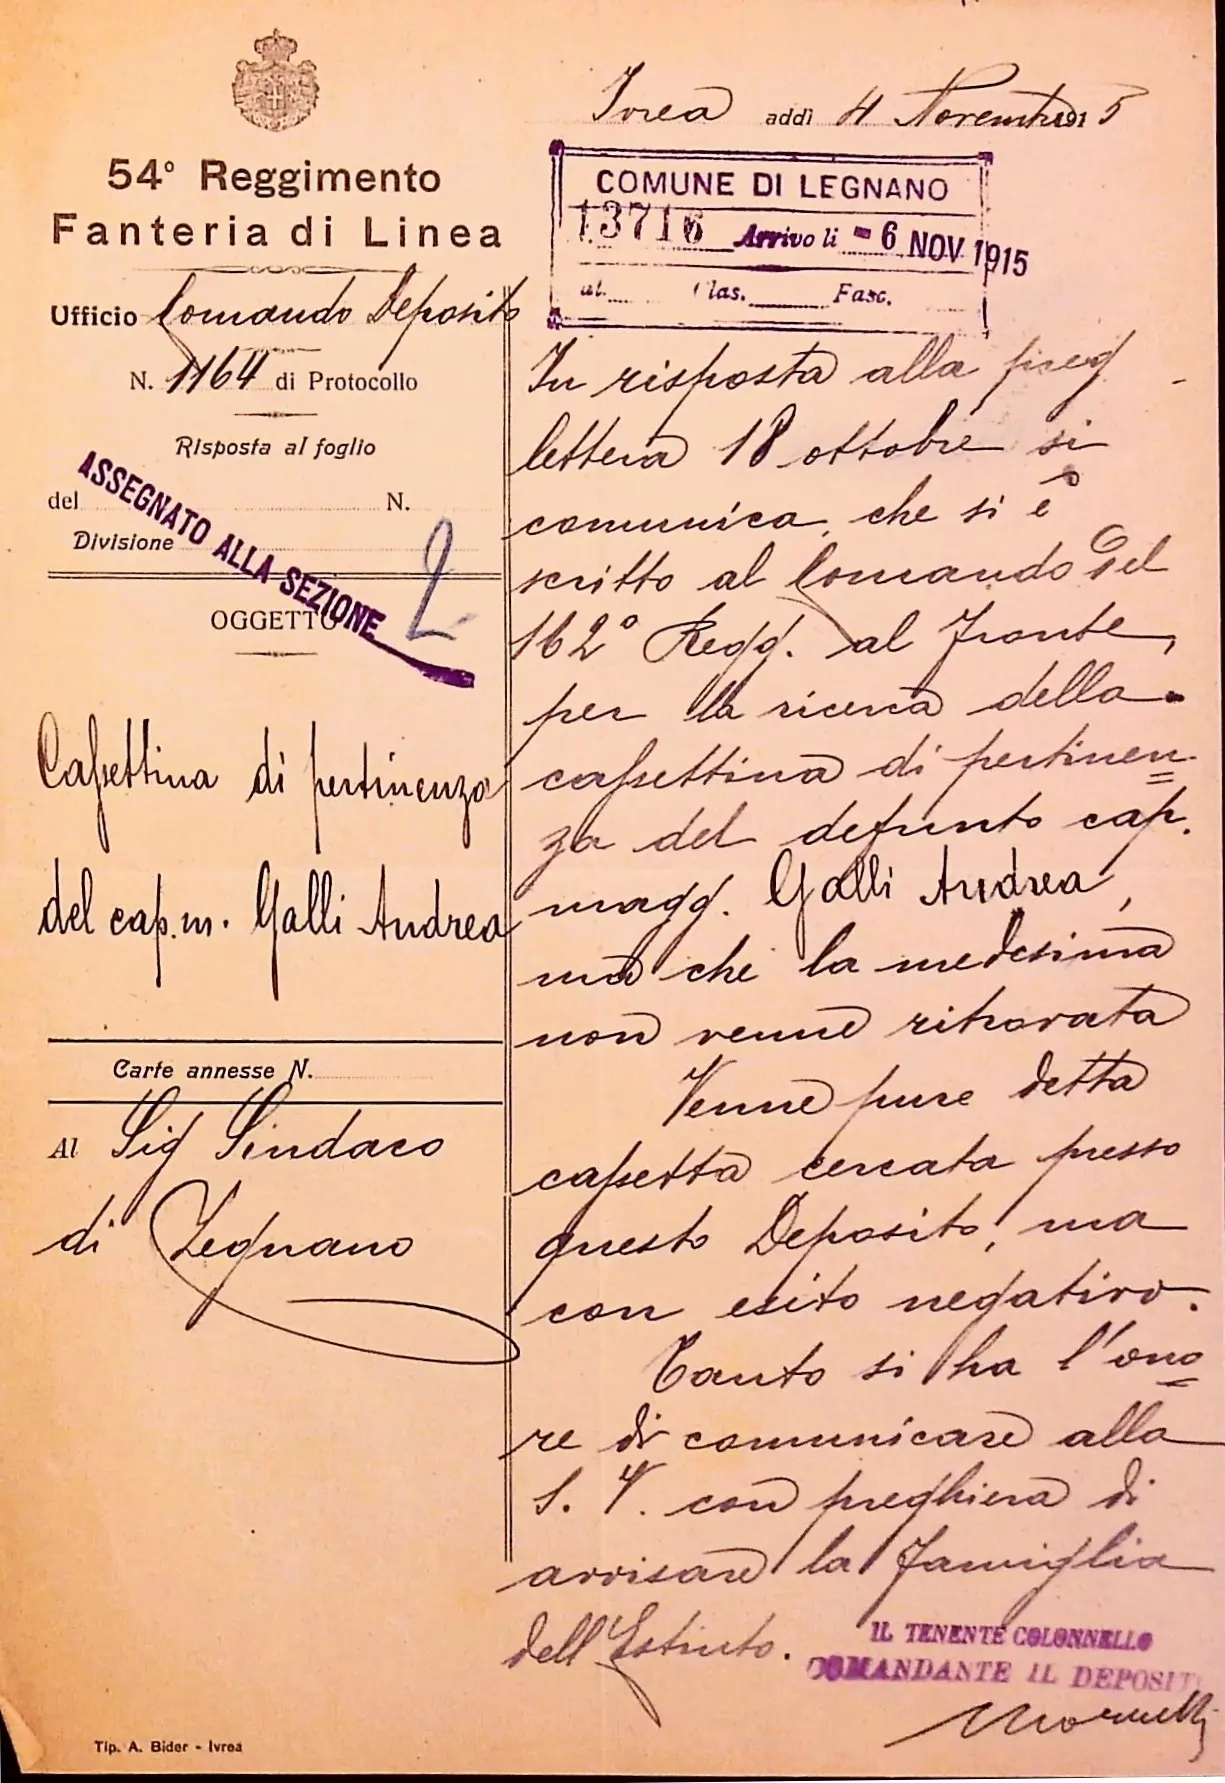 54° Reggimento
Fanteria di Linea
Ufficio Comando Deposito
N. 1164 di Protocollo
Risposta al foglio
del N.
Divisione
ASSEGNATO ALLA SEZIONE 2
OGGETTO
Cassettina di pertinenza
del cap. m. Galli Andrea
Carte annesse N.
Al Sig Sindaco
di Legnano
Tip. A. Bider - Ivrea
Ivrea addì 4 Novembre 1915
COMUNE DI LEGNANO
13716 Arrivo li - 6 NOV 1915
at. Clas. Fasc.
In risposta alla preg
lettera 18 ottobre si
comunica, che si è
scritto al Comando del
162° Regg. al Fronte,
per la ricerca della
cassettina di pertinen=
za del defunto cap.
magg. Galli Andrea,
ma che la medesima
non venne ritrovata
Venne pure detta
cassetta cercata presso
questo Deposito, ma
con esito negativo.
Tanto si ha l'ono=
re di comunicare alla
S. V. con preghiera di
avvisare la famiglia
dell'Estinto.
IL TENENTE COLONNELLO
COMANDANTE IL DEPOSIT